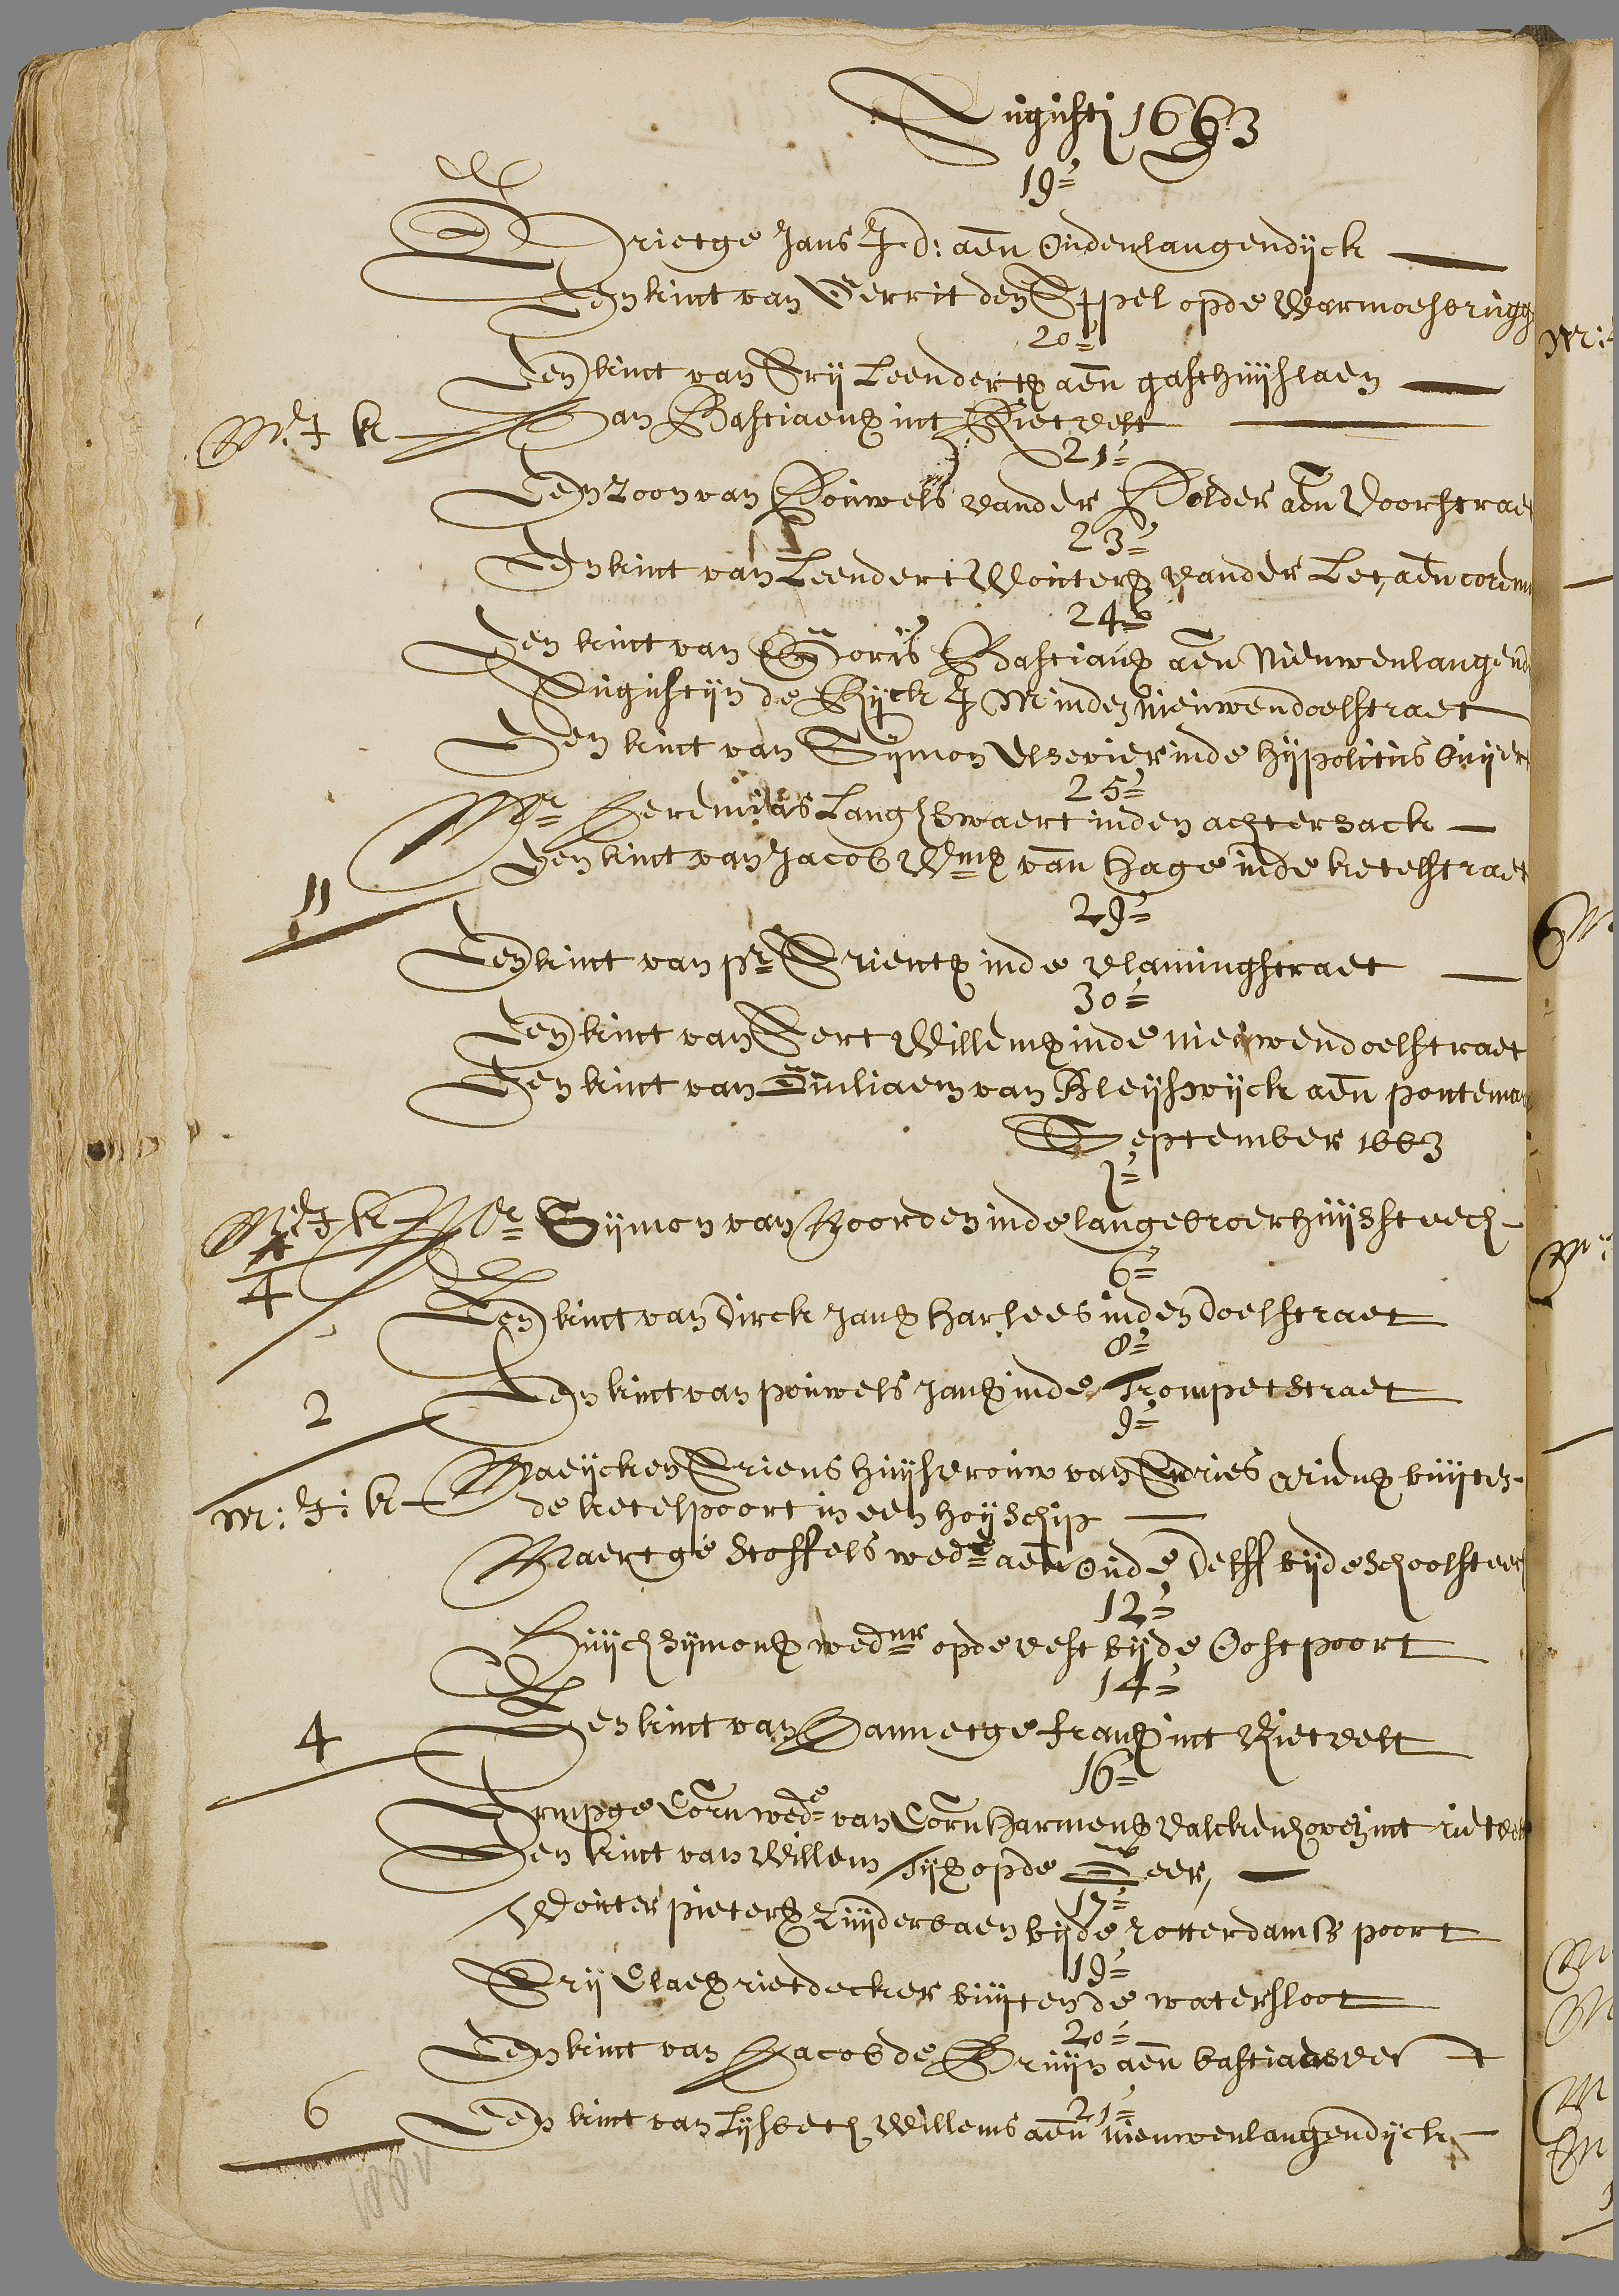 Augusti 1663
19=
Grietge Jans J.d: aen Oudenlangendijck
Een kint van Gerrit den Appel opde Warmoesbrugg
20=
Een kint van Arij Leendertsz aen gasthuijslaen
M: J k Jan Bastiaensz int Rietvelt
21=
Een Zoon van Pouwels vander Polder aen Voorstraet
23=
Een kint van Leendert Woutersz vander Lee, aen corenm
24=
Een kint van Joris Bastiaensz aen Nieuwenlangend
Augustijn de Rijck J M inden nieuwendoelstraet
Een kint van Sijmon Elsevier inde hijpolitus buijer
25=
Mr Jeremias Langhswaert inden achtersack
Een kint van Jacob Wmsz van Hage inde ketelstraet
11
29=
Een kint van pr Arientsz inde vlamingstraet
30=
Een kint van Aert Willemsz inde nieuwendoelstraet
Een kint van Juliaem van Bleijswijck aen pontemar
September 1663
1=
M: J k Mr Sijmon van Noorden inde lange broerhuijssteech
4
6=
Een kint van Dirck Jansz harlees inden doelstraet
8=
Een kint van pouwels Jansz inde Trompetstraet
2
9=
M: J: k Maeijcken Ariens huijsvrouw van Andries ariensz buijten
de ketelpoort in een hoijschip
Maertge Stoffels wede aen Oude Delff bijde schoolsteech
12=
Huijch sijmonsz wednr opde vest bijde Oostpoort
14=
Een kint van Jannetge fransz int Rietvelt
4
16=
Armpge Corn wede van Corn harmensz valckenhoven int rietvelt
Een kint van Willem Tijsz opde Geer,
17=
Wouter pietersz Zuijderbaen bijde rotterdamse poort
19=
Arij Claesz rietdecker buijten de watersloot
20=
Een kint van Jacob de Bruijn aen bastiaensvest
21=
Een kint van Lijsbeth Willems aen nieuwenlangendijck
6
188v